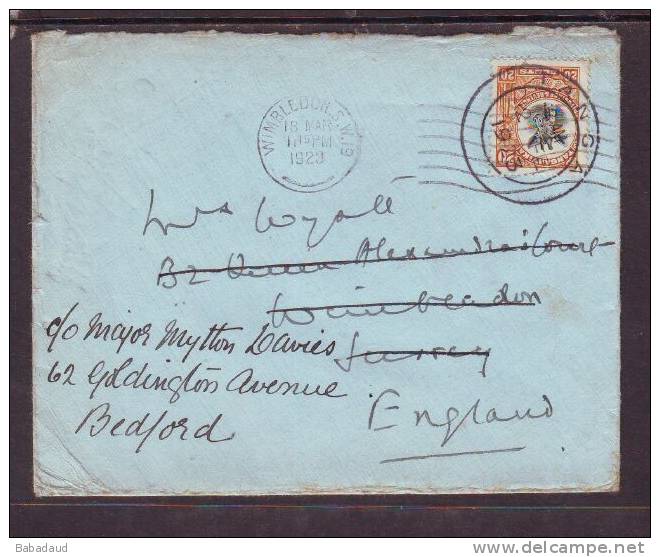 WIMBLEDON. S.W.19
18 MAR
1923
TANGA
20 20
Mrs Wyatt
B2 Queen Alexandra's Court
Wimbledon
Surrey
England
c/o Major Mytton Davies
62 Goldington Avenue
Bedford
Babadaud
delcampe.net